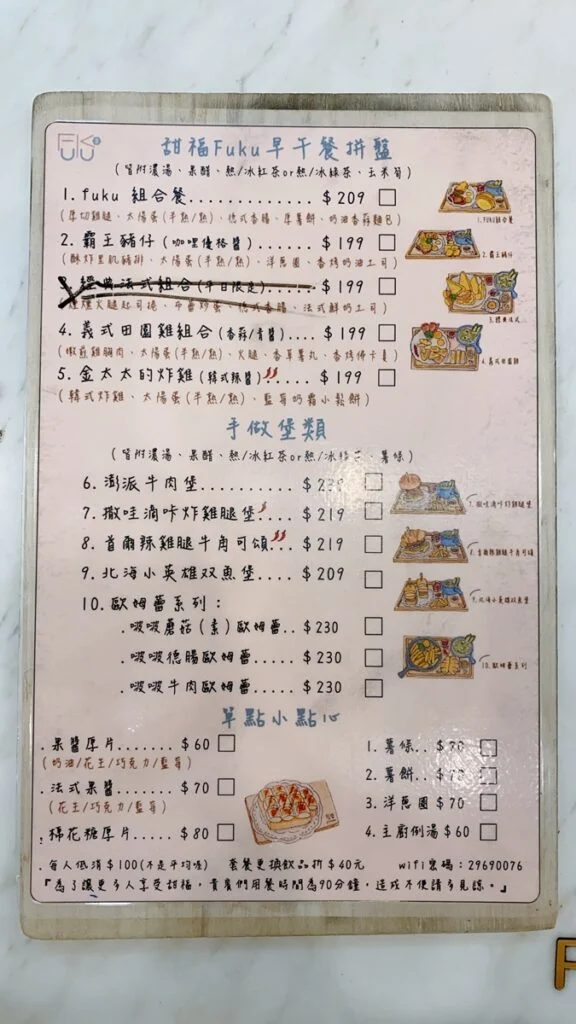 FUKU
甜福Fuku早午餐拼盤
(皆附濃湯、果醋、熱/冰紅茶or熱/冰綠茶、玉米筍)
1. fuku 組合餐................ $209
(厚切雞腿、太陽蛋(半熟/熟)、德式香腸、厚薯餅、奶油香蒜麵包)
1. FUKU組合餐
2. 霸王豬仔 (咖哩優格醬)......... $199
(酥炸里肌豬排、太陽蛋(半熟/熟)、洋蔥圈、香烤奶油工司)
2. 霸王豬仔
經典法式組合(平日限定)...... $199
煙燻火腿起司捲、布蕾炒蛋、德式香腸、法式鮮奶土司)
3. 經典法式
4. 義式田園雞組合 (香蒜/青醬).... $199
(嫩煎雞胸肉、太陽蛋(半熟/熟)、火腿、香草薯丸、香烤佛卡夏)
4. 義式田園雞
5. 金太太的炸雞 (韓式辣醬)....... $199
(韓式炸雞、太陽蛋(半熟/熟)、藍莓奶霜小鬆餅)
手做堡類
(皆附濃湯、果醋、熱/冰紅茶or熱/冰綠茶、薯條)
6. 澎派牛肉堡.......... $239
7. 撒哇滴咔炸雞腿堡.. $219
7. 撒哇滴咔炸雞腿堡
8. 首爾辣雞腿牛角可頌.... $219
8. 首爾辣雞腿牛角可頌
9. 北海小英雄双魚堡.... $209
9. 北海小英雄双魚堡
10. 歐姆蕾系列：
.啵啵蘑菇(素)歐姆蕾.. $230
.啵啵德腸歐姆蕾..... $230
.啵啵牛肉歐姆蕾..... $230
10. 歐姆蕾系列
單點小點心
. 果醬厚片...... $60
(奶油/花生/巧克力/藍莓)
. 法式果醬...... $70
(花生/巧克力/藍莓)
. 棉花糖厚片.... $80
1. 薯條.. $70
2. 薯餅.. $70
3. 洋蔥圈 $70
4. 主廚例湯 $60
. 每人低消$100(不是平均唷) 套餐更換飲品折$40元 wifi密碼：29690076
「為了讓更多人享受甜福，貴賓們用餐時間為90分鐘，造成不便請多見諒。」